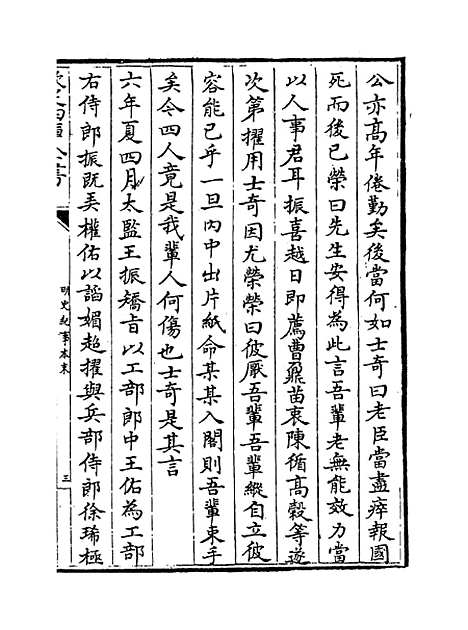 公亦高年倦勤矣後當何如士奇曰老臣當盡瘁報國
死而後已榮曰先生安得為此言吾輩老無能效力當
以人事君耳振喜越日即薦曹鼐苗衷陳循高穀等遂
次第擢用士奇因尤榮榮曰彼厭吾輩吾輩縱自立彼
容能已乎一旦內中出片紙命某某入閣則吾輩束手
矣今四人竟是我輩人何傷也士奇是其言
六年夏四月太監王振矯旨以工部郎中王佑為工部
右侍郎振既弄權佑以諂媚超擢與兵部侍郎徐琋極
明史紀事本末
三